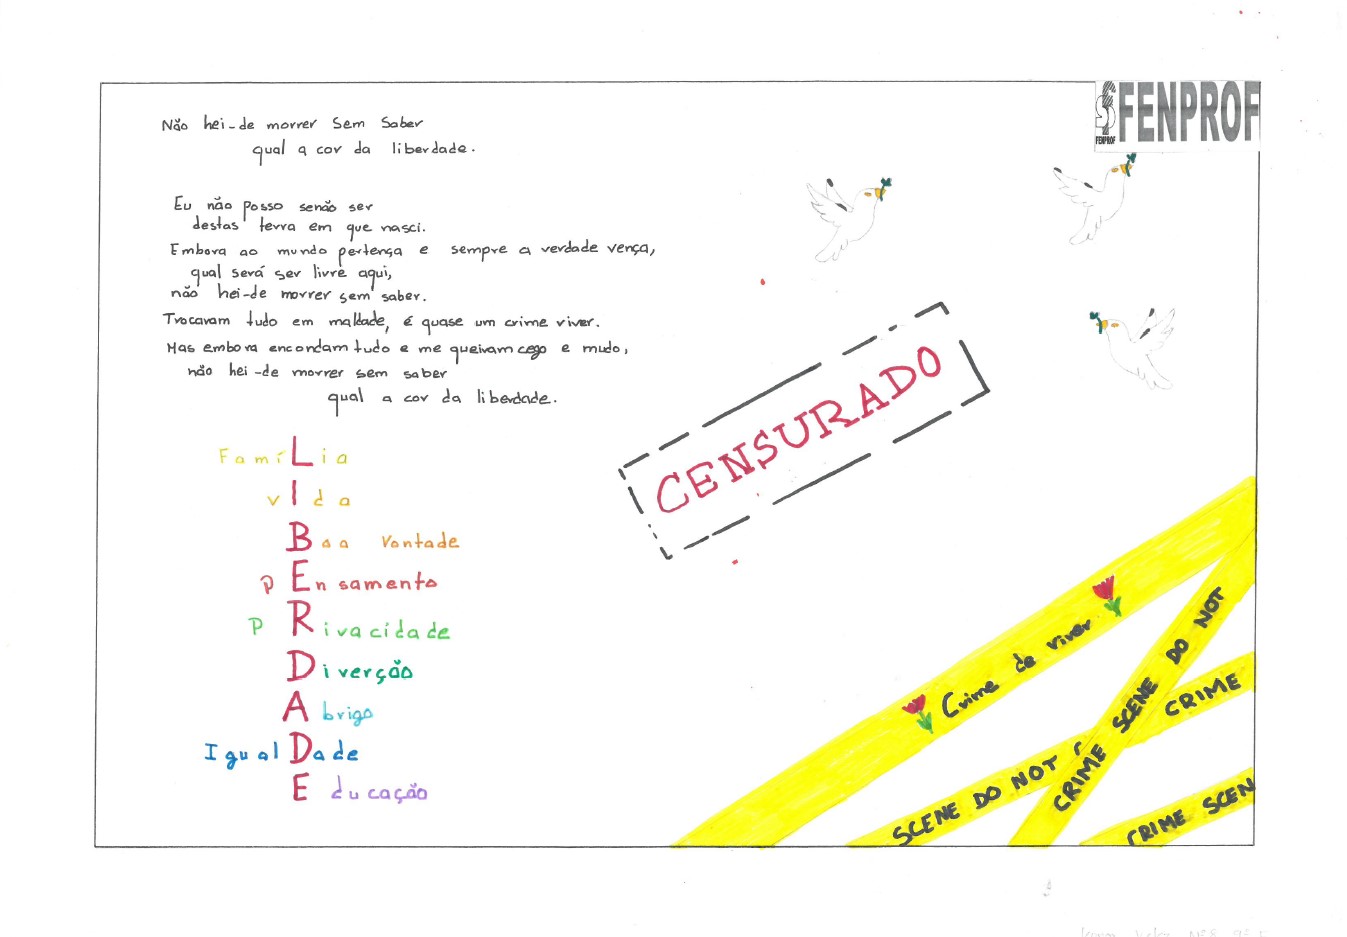 FENPROF
FENPROF
Não hei-de morrer Sem Saber
qual a cor da liberdade.
Eu não posso senão ser
destas terra em que nasci.
Embora ao mundo pertença e sempre a verdade vença,
qual será ser livre aqui,
não hei-de morrer sem saber.
Trocaram tudo em maldade, é quase um crime viver.
Mas embora encondam tudo e me queiram cego e mudo,
não hei-de morrer sem saber
qual a cor da liberdade.
FamíLia
vIda
Boa Vontade
pEnsamento
PRivacidade
Diverção
Abrigo
IgualDade
Educação
CENSURADO
Crime de viver
CRIME SCENE DO NOT
SCENE DO NOT C
CRIME
CRIME SCEN